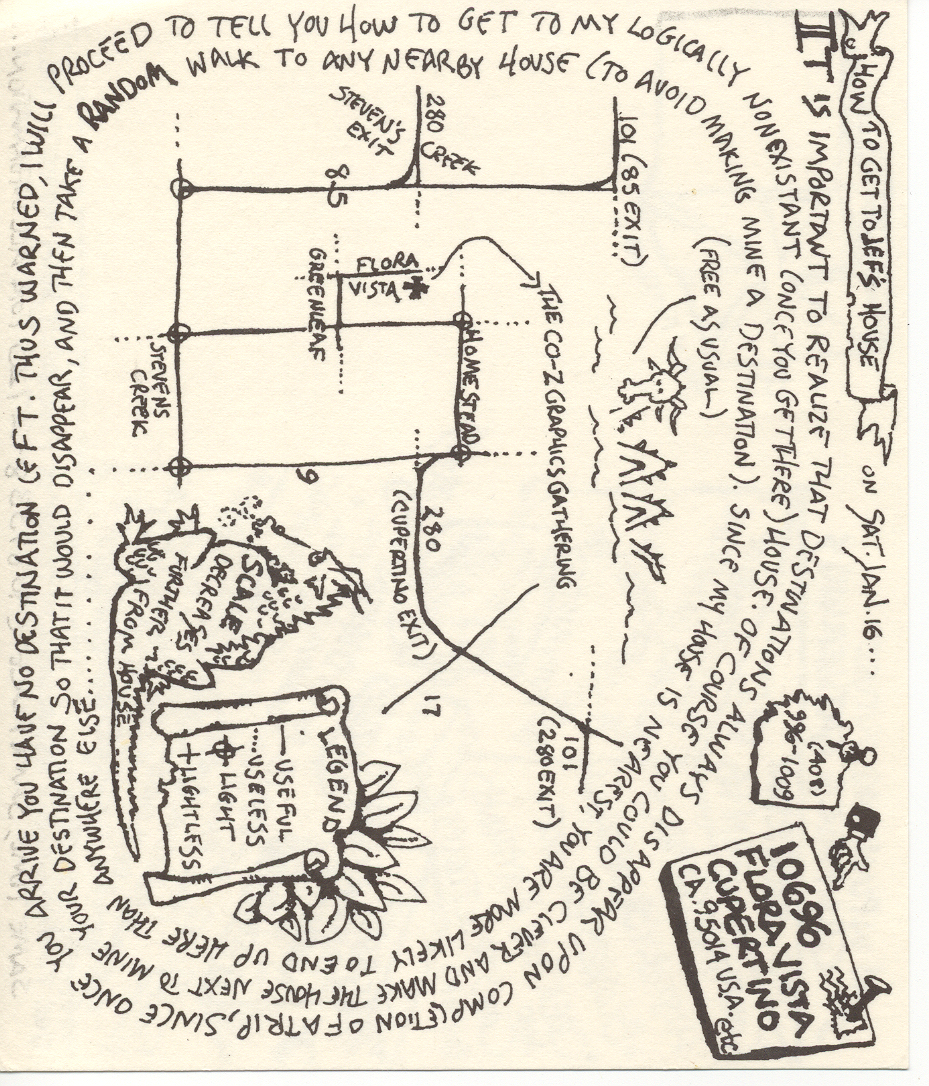 HOW TO GET TO JEF'S HOUSE
ON SAT. JAN. 16...
IT IS IMPORTANT TO REALIZE THAT DESTINATIONS ALWAYS DISAPPEAR UPON COMPLETION OF A TRIP, SINCE ONCE YOU
ARRIVE YOU HAVE NO DESTINATION LEFT. THUS WARNED, I WILL PROCEED TO TELL YOU HOW TO GET TO MY LOGICALLY
NONEXISTANT (ONCE YOU GET THERE) HOUSE. OF COURSE YOU COULD BE CLEVER AND MAKE THE HOUSE NEXT TO MINE
YOUR DESTINATION SO THAT IT WOULD DISAPPEAR, AND THEN TAKE A RANDOM WALK TO ANY NEARBY HOUSE (TO AVOID
MAKING MINE A DESTINATION). SINCE MY HOUSE IS NEAREST, YOU ARE MORE LIKELY TO END UP HERE THAN
ANYWHERE ELSE......
(FREE AS USUAL)
(408)
996-1009
10696
FLORA VISTA
CUPERTINO
CA. 95014 U.S.A. etc.
101 (85 EXIT)
280
STEVEN'S CREEK
EXIT
85
THE CO-Z GRAPHICS GATHERING
FLORA
VISTA
GREENLEAF
HOMESTEAD
STEVENS
CREEK
9
280
(CUPERTINO EXIT)
17
101
(280 EXIT)
SCALE
DECREASES
FURTHER
FROM HOUSE
LEGEND
USEFUL
USELESS
LIGHT
LIGHTLESS